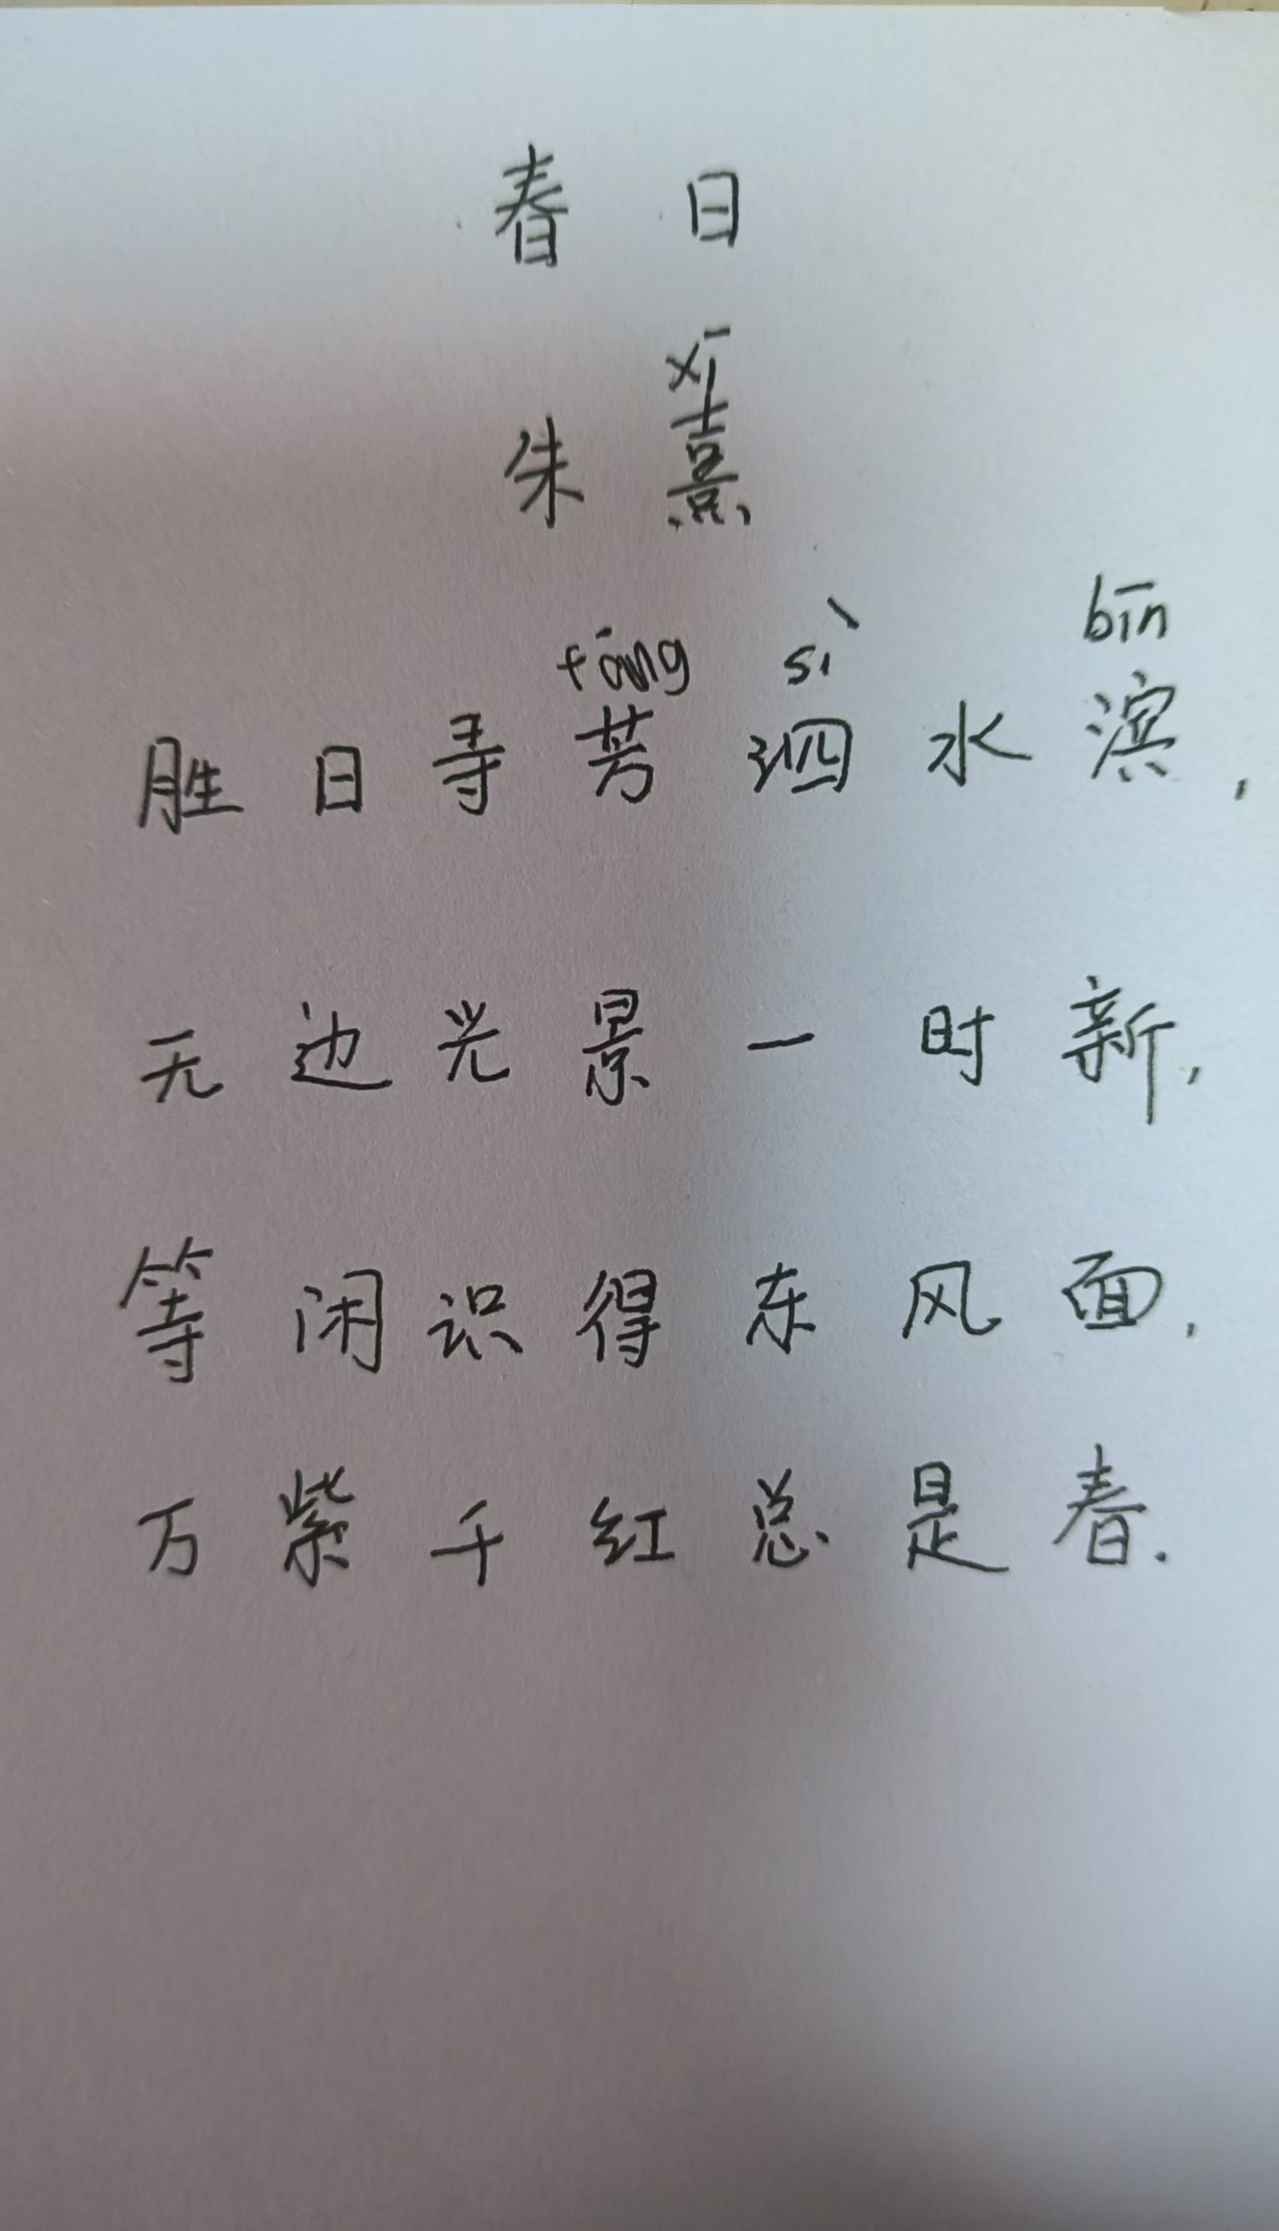 春日
xī
朱熹
fāng sì bīn
胜日寻芳泗水滨,
无边光景一时新,
等闲识得东风面,
万紫千红总是春.